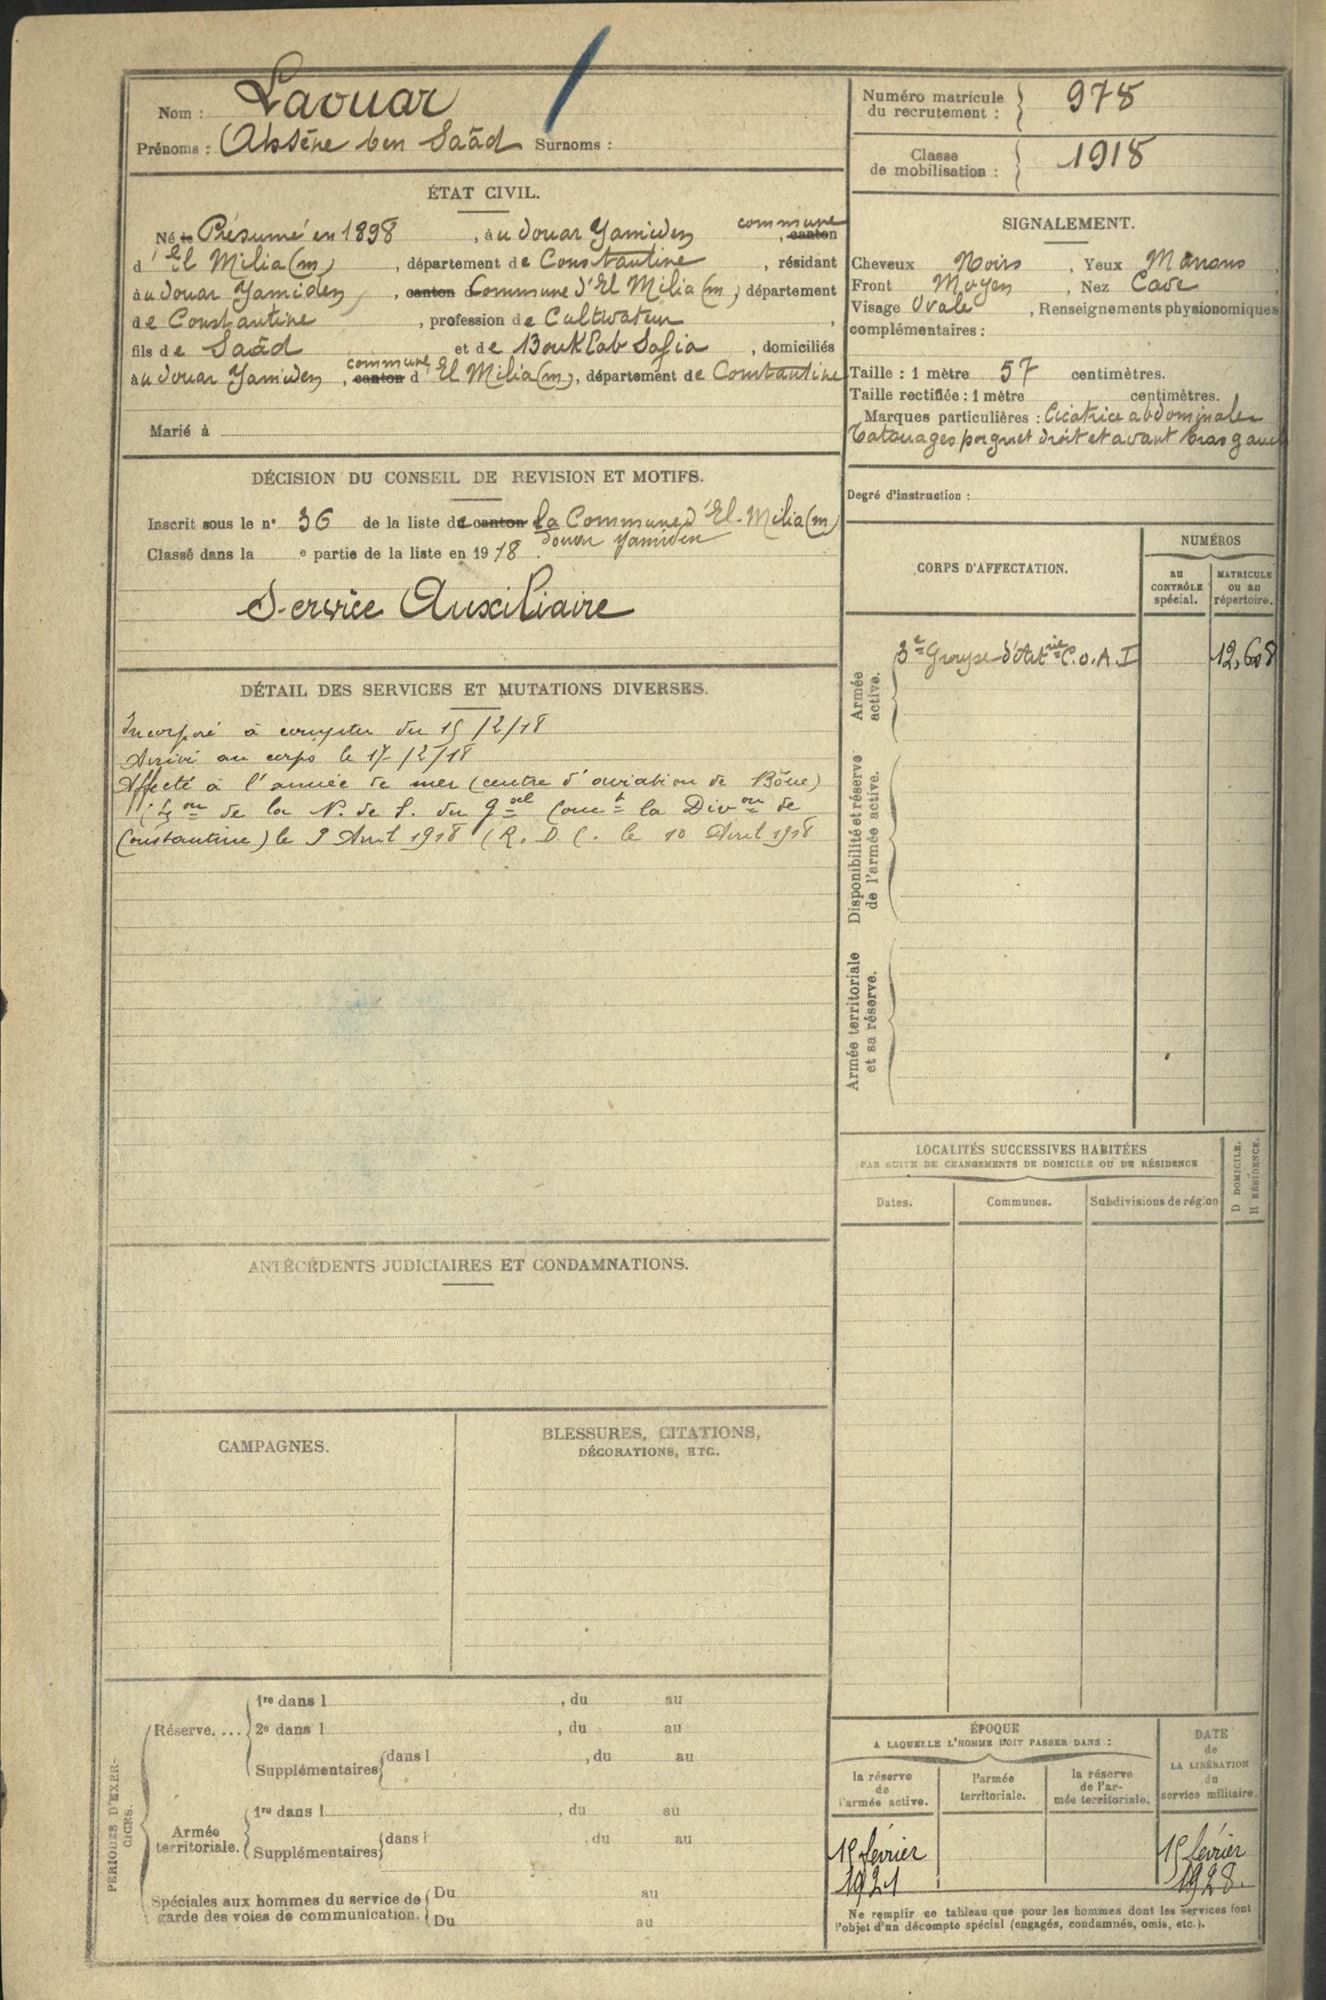 Nom : Laouar
Prénoms : Ahsène ben Saâd Surnoms :
Numéro matricule du recrutement : 978
Classe de mobilisation : 1918
ÉTAT CIVIL.
Né le Présumé en 1898, au douar Yamiden commune, canton
d'El Milia (m), département de Constantine, résidant
au douar Yamiden, canton d Commune d'El Milia (m), département
de Constantine, profession de Cultivateur,
fils de Saâd et de Bouklab Safia, domiciliés
au douar Yamiden, commune, canton d'El Milia (m), département de Constantine
Marié à
SIGNALEMENT.
Cheveux Noirs, Yeux Marrons,
Front Moyen, Nez Cave,
Visage Ovale, Renseignements physionomiques
complémentaires :
Taille : 1 mètre 57 centimètres.
Taille rectifiée : 1 mètre centimètres.
Marques particulières : Cicatrice abdominale
tatouages poignet droit et avant bras gauche
Degré d'instruction :
DÉCISION DU CONSEIL DE REVISION ET MOTIFS.
Inscrit sous le n° 36 de la liste de canton la Commune d'El-Milia (m)
Classé dans la e partie de la liste en 1918. douar Yamiden
Service Auxiliaire
CORPS D'AFFECTATION.
NUMÉROS
AU CONTRÔLE spécial.
MATRICULE OU AU répertoire.
Armée active.
3e Groupe d'Artrie C.O.A.I
12.608
Disponibilité et réserve de l'armée active.
Armée territoriale et sa réserve.
DÉTAIL DES SERVICES ET MUTATIONS DIVERSES.
Incorporé à compter du 15/2/18
Arrivé au corps le 17/2/18
Affecté à l'armée de mer (centre d'aviation de Bône)
de la N. de S. du Gal Comt la Divon de
Constantine) le 9 Avril 1918 (R. D C. le 10 Avril 1918
LOCALITÉS SUCCESSIVES HABITÉES
PAR SUITE DE CHANGEMENTS DE DOMICILE OU DE RÉSIDENCE
Dates.
Communes.
Subdivisions de région
D DOMICILE.
R RÉSIDENCE.
ANTÉCÉDENTS JUDICIAIRES ET CONDAMNATIONS.
CAMPAGNES.
BLESSURES, CITATIONS,
DÉCORATIONS, ETC.
PÉRIODES D'EXERCICES.
Réserve....
1re dans l , du au
2e dans l , du au
Supplémentaires dans l , du au
Armée territoriale.
1re dans l , du au
Supplémentaires dans l , du au
Spéciales aux hommes du service de garde des voies de communication.
Du au
Du au
ÉPOQUE
A LAQUELLE L'HOMME DOIT PASSER DANS :
la réserve de l'armée active.
l'armée territoriale.
la réserve de l'armée territoriale.
DATE de LA LIBÉRATION du service militaire.
15 février 1921
15 février 1928.
Ne remplir ce tableau que pour les hommes dont les services font
l'objet d'un décompte spécial (engagés, condamnés, omis, etc.).